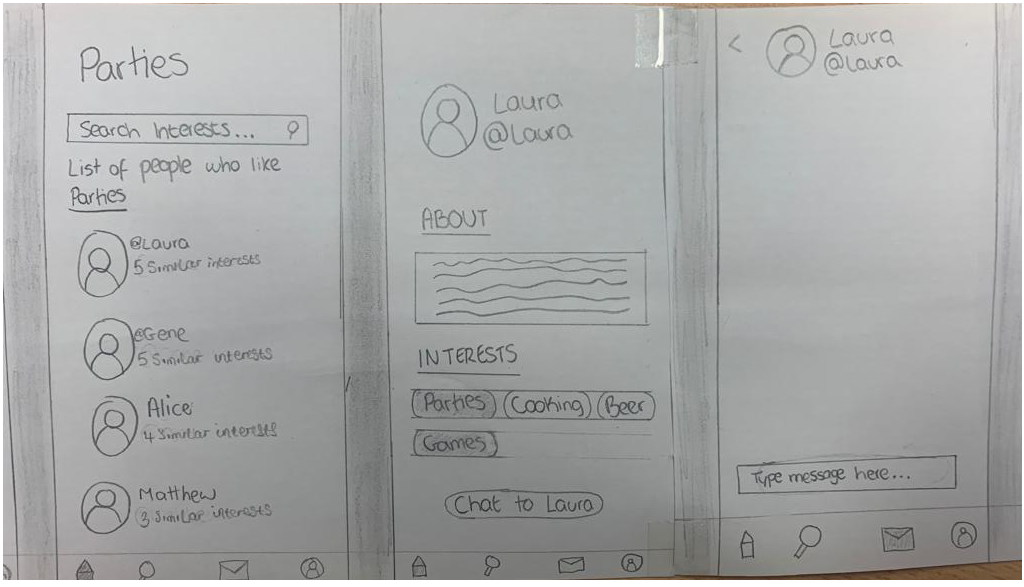 Parties
Search Interests...
List of people who like
Parties
@Laura
5 Similar interests
@Gene
5 Similar interests
Alice
4 Similar interests
Matthew
3 Similar interests
Laura
@Laura
ABOUT
INTERESTS
Parties Cooking Beer
Games
Chat to Laura
Laura
@Laura
Type message here...